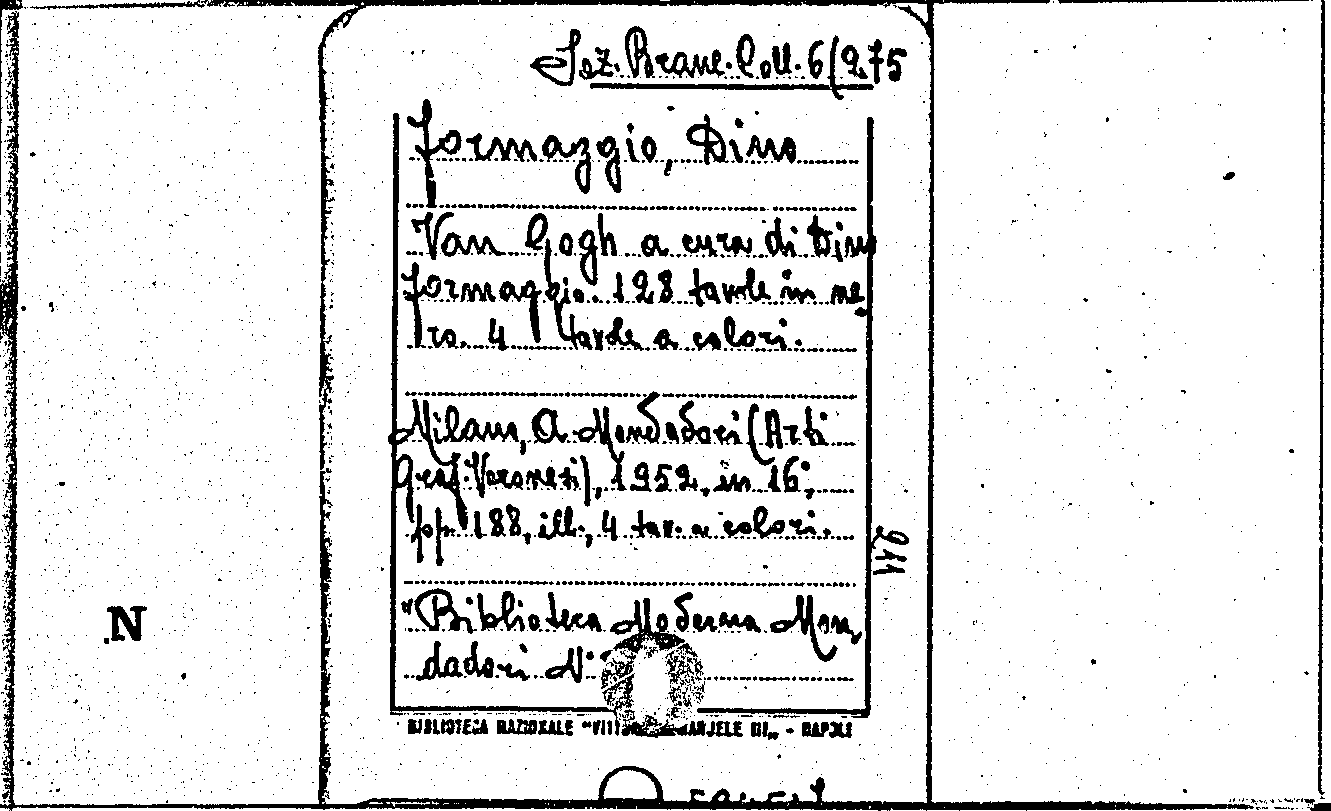 Sez. Branc. Coll. 6(2.75
Formaggio, Dino
Van Gogh a cura di Dino
Formaggio. 128 tavole in ne
ro. 4 tavole a colori.
Milano, A. Mondadori (Arti
Graf. Veronesi), 1952, in 16°,
pp. 188, ill., 4 tav. a colori.
911
"Biblioteca Moderna Mon,
dadori N°
N
BIBLIOTECA NAZIONALE "VITTORIO EMANUELE III„ - NAPOLI